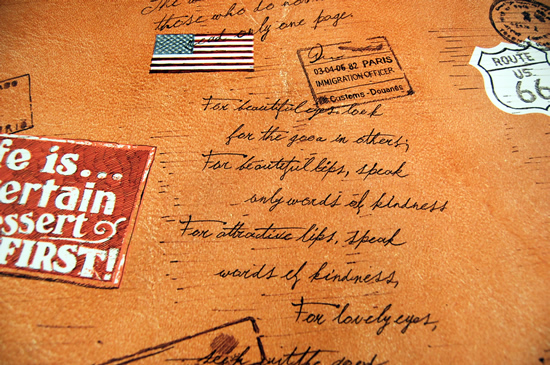 those who do no
only one page.
03-04-06 82 PARIS
IMMIGRATION OFFICER
Customs - Douanes
ROUTE
U.S.
66
For beautiful eyes, look
for the good in others,
For beautiful lips, speak
only words of kindness
For attractive lips, speak
words of kindness,
For lovely eyes,
fe is...
ertain
essert
FIRST!